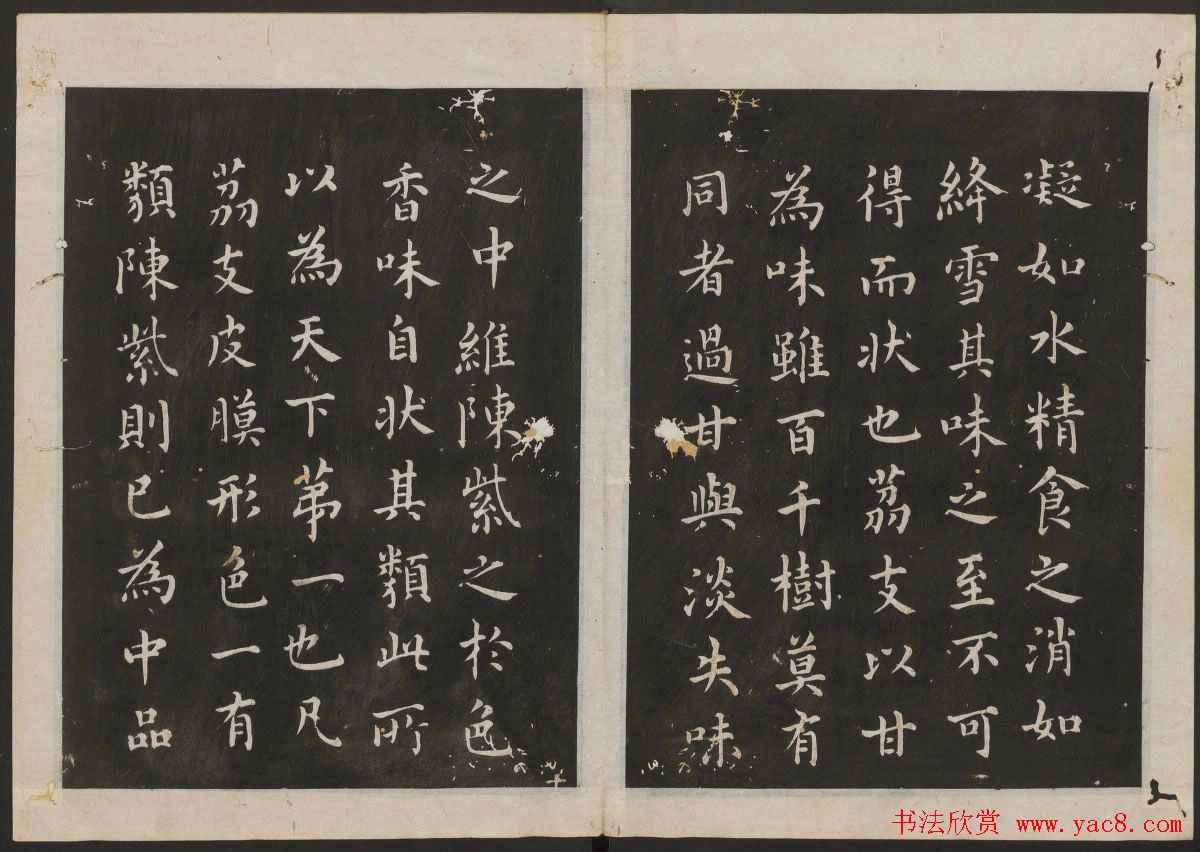 凝如水精食之消如
絳雪其味之至不可
得而状也荔支以甘
為味雖百千樹莫有
同者過甘與淡失味
之中維陳紫之於色
香味自状其類此所
以為天下第一也凡
荔支皮膜形色一有
類陳紫則已為中品
书法欣赏 www.yac8.com